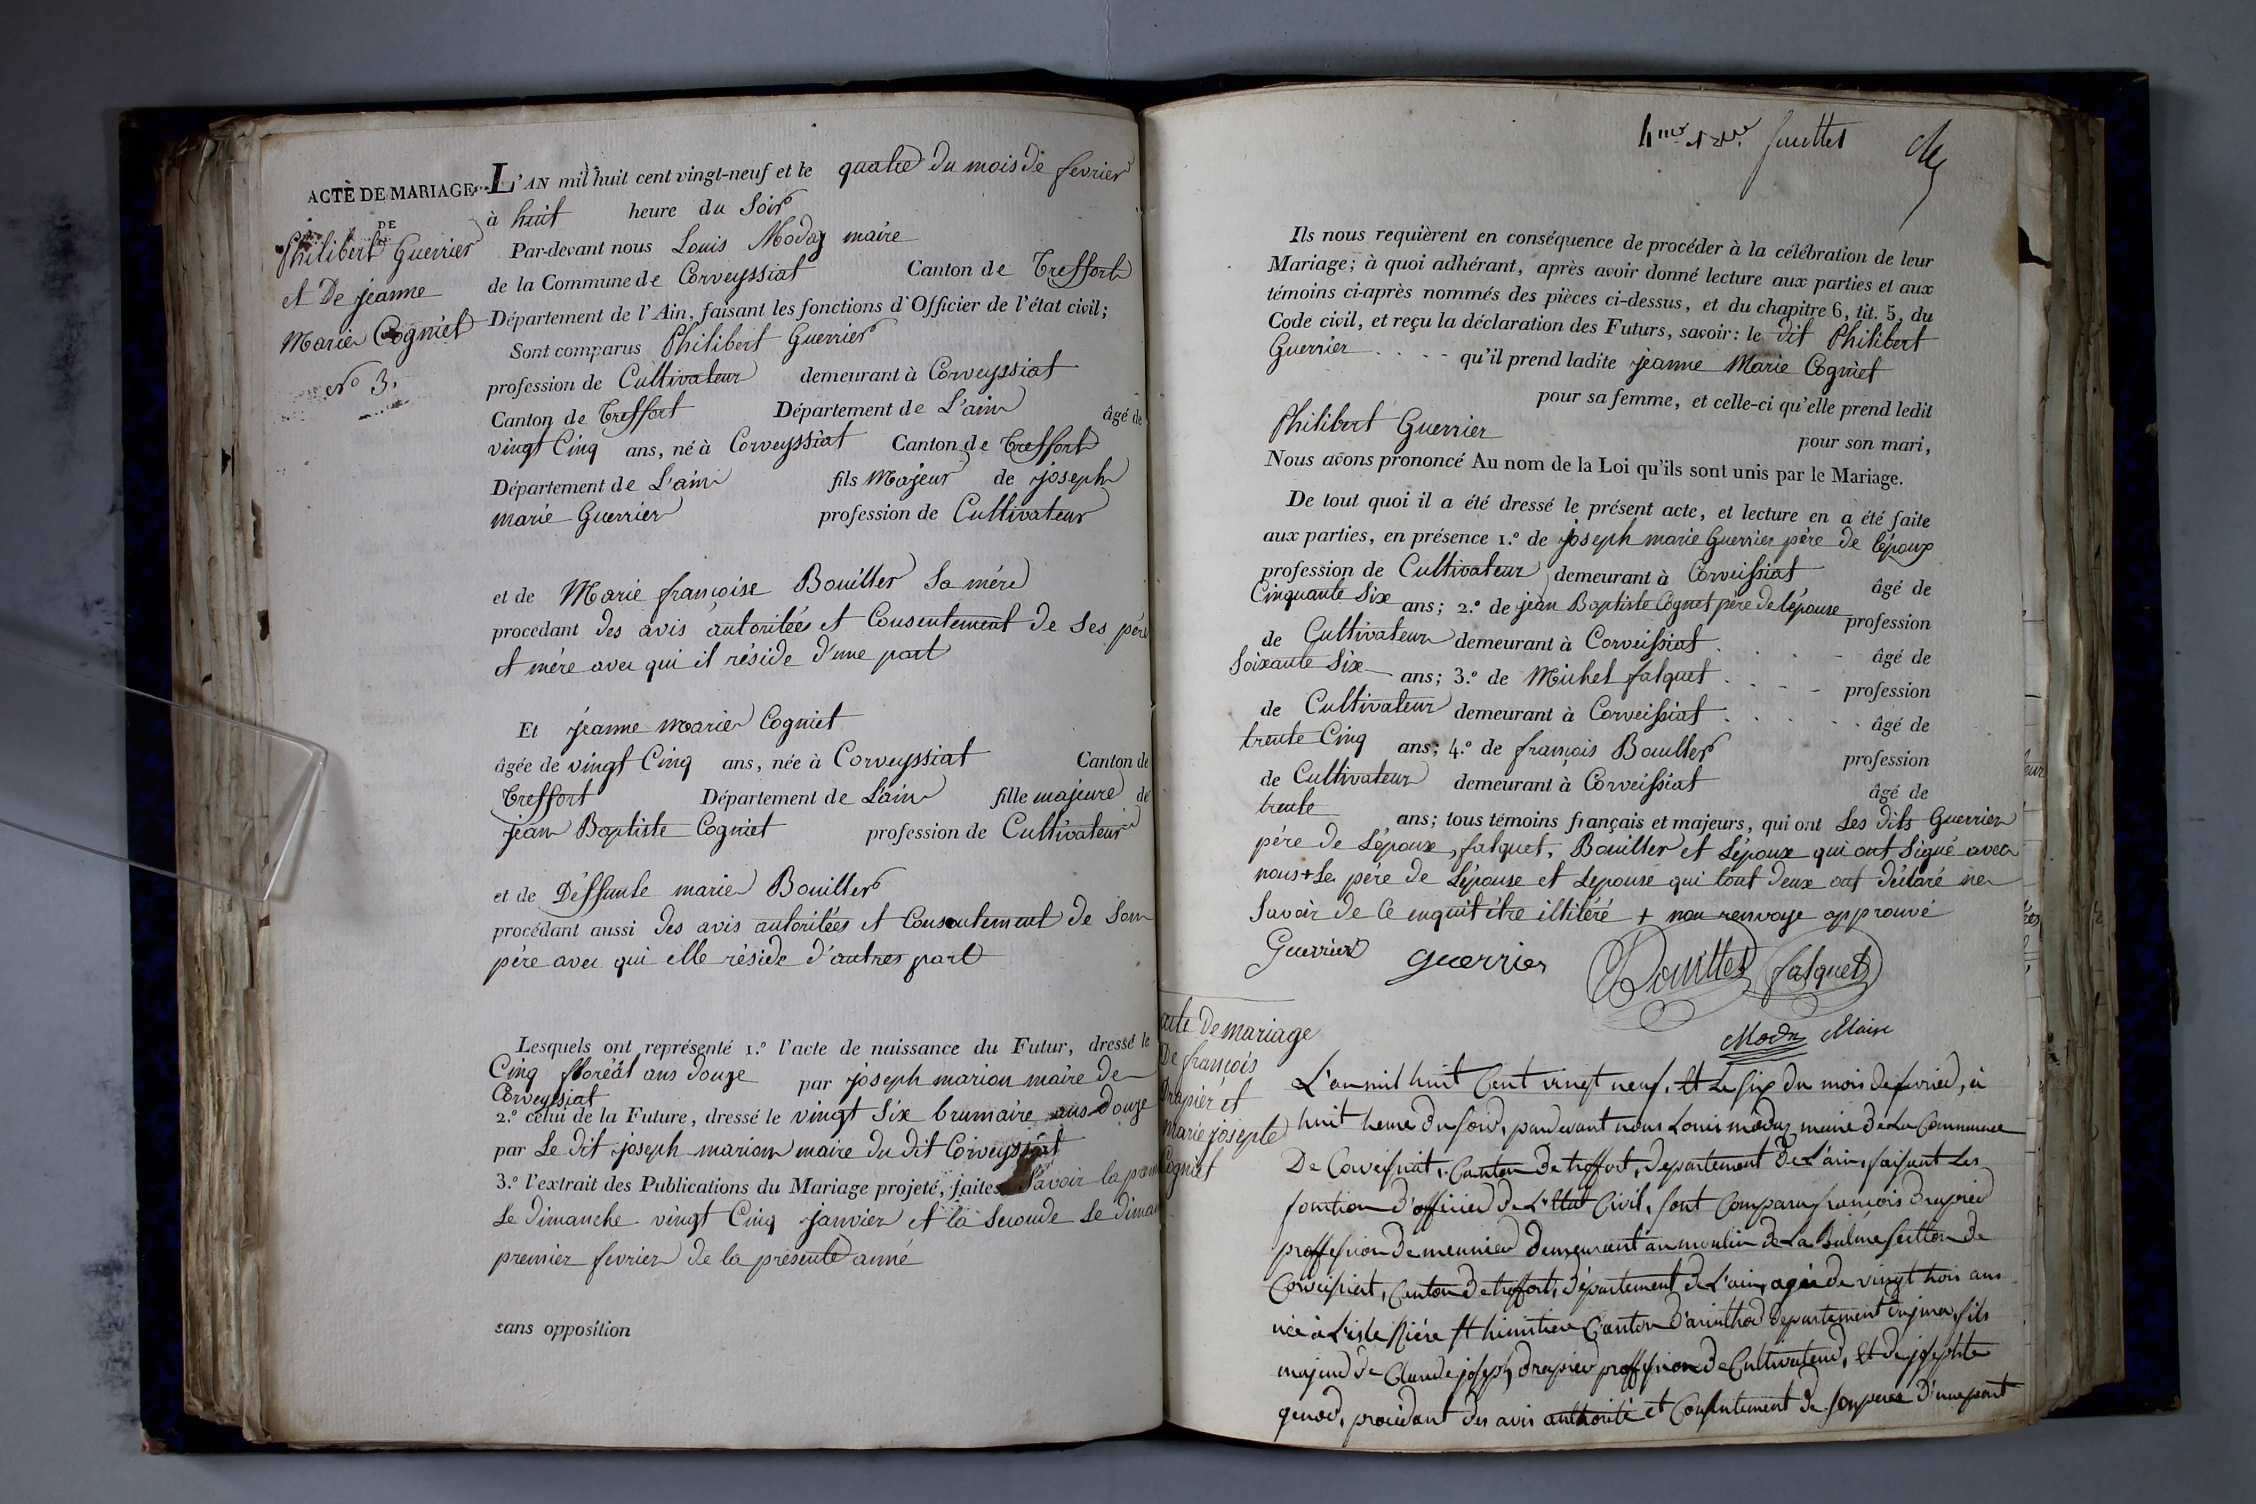 ACTE DE MARIAGE
DE
Philibert Guerrier
et De jeanne
Marie Cogniet
No 3.
L'AN mil huit cent vingt-neuf et le quatre du mois de fevrier
à huit heure du Soir
Par-devant nous Louis Moday maire
de la Commune de Corveyssiat Canton de Treffort
Département de l'Ain, faisant les fonctions d'Officier de l'état civil;
Sont comparus Philibert Guerrier
profession de Cultivateur demeurant à Corveyssiat
Canton de Treffort Département de L'ain âgé de
vingt Cinq ans, né à Corveyssiat Canton de Treffort
Département de L'ain fils Majeur de joseph
marie Guerrier profession de Cultivateur
et de Marie françoise Bouiller Sa mére
procedant des avis autoritées et Consentement de Ses pére
et mére avec qui il réside d'une part
Et jeanne marie Cogniet
âgée de vingt Cinq ans, née à Corveyssiat Canton de
Treffort Département de L'ain fille majeure de
jean Baptiste Cogniet profession de Cultivateur
et de Déffunte marie Bouiller
procédant aussi des avis autoritées et Consentement de Son
pére avec qui elle réside d'autres part
Lesquels ont représenté 1.º l'acte de naissance du Futur, dressé le
Cinq floréal ans douze par joseph marion maire de
Corveyssiat
2.º celui de la Future, dressé le vingt Six brumaire ans Douze
par Le dit joseph marion maire du dit Corveyssiat
3.º l'extrait des Publications du Mariage projeté, faites Savoir la
Le dimanche vingt Cinq janvier et la Seconde Le
premier fevrier de la présente anné
sans opposition
juillet
Ils nous requièrent en conséquence de procéder à la célébration de leur
Mariage; à quoi adhérant, après avoir donné lecture aux parties et aux
témoins ci-après nommés des pièces ci-dessus, et du chapitre 6, tit. 5, du
Code civil, et reçu la déclaration des Futurs, savoir: le dit Philibert
Guerrier . . . - qu'il prend ladite jeanne Marie Cogniet
pour sa femme, et celle-ci qu'elle prend ledit
Philibert Guerrier pour son mari,
Nous avons prononcé Au nom de la Loi qu'ils sont unis par le Mariage.
De tout quoi il a été dressé le présent acte, et lecture en a été faite
aux parties, en présence 1.º de joseph marie Guerrier pére de lépoux
profession de Cultivateur demeurant à Corveissiat âgé de
Cinquante Six ans; 2.º de jean Baptiste Cogniet pére de lépouse profession
de Cultivateur demeurant à Corveissiat . . - âgé de
Soixante Six ans; 3.º de Michel falquet . . - - profession
de Cultivateur demeurant à Corveissiat . . . . âgé de
trente Cinq ans; 4.º de françois Bouiller profession
de Cultivateur demeurant à Corveissiat âgé de
trente ans; tous témoins français et majeurs, qui ont Les dits Guerrier
pére de Lépoux, falquet, Bouiller et Lépoux qui ont Signé avec
nous + Le pére de Lépouse et Lepouse qui tout deux ont déclaré ne
Savoir de Ce enquit être illitéré + mon renvoye approuvé
Guerrier guerrier Bouiller falquet
Moday Maire
acte De mariage
De françois
Drapier et
Marie josepte
Cogniet
L'an mil huit Cent vingt neuf, et Le six du mois de fevrier, à
huit heure du soir, pardevant nous Louis moday maire de La Commune
De Corveissiat, Canton de treffort, departement de L'ain, faisant Les
fonction d'officier de L'Etat Civil, sont Comparu françois drapier
proffession de meunier demeurant au moulin de La Balme section de
Corveissiat, Canton de treffort, département de L'ain, agée de vingt trois ans
née à L'isle Canton D'arinthod departement du jura, fils
majeur de Claude joseph drapier proffession de Cultivateur, et de josephte
, procédant des avis authorité et Consentement de son pere D'une part